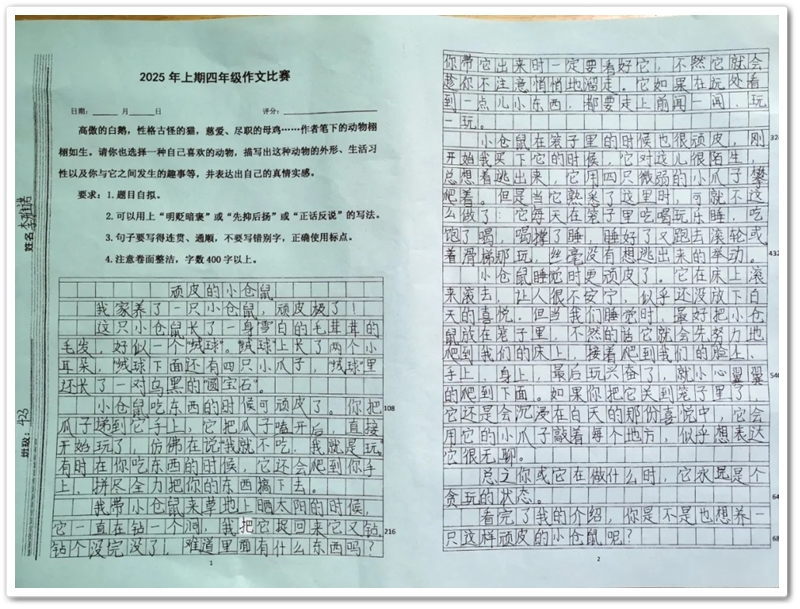 2025年上期四年级作文比赛
日期:____月____日 评分:
高傲的白鹅，性格古怪的猫，慈爱、尽职的母鸡……作者笔下的动物栩
栩如生。请你也选择一种自己喜欢的动物，描写出这种动物的外形、生活习
性以及你与它之间发生的趣事等，并表达出自己的真情实感。
要求：1.题目自拟。
2.可以用上“明贬暗褒”或“先抑后扬”或“正话反说”的写法。
3.句子要写得连贯、通顺，不要写错别字，正确使用标点。
4.注意卷面整洁，字数400字以上。
姓名
班级：423
顽皮的小仓鼠
我家养了一只小仓鼠，顽皮极了！
这只小仓鼠长了一身雪白的毛茸茸的
毛发，好似一个“绒球”。“绒球”上长了两个小
耳朵，“绒球”下面还有四只小爪子，“绒球”里
还长了一对乌黑的“圆宝石”。
小仓鼠吃东西的时候可顽皮了。你把
108
瓜子递到它手上，它把瓜子嗑开后，直接
开始玩了，仿佛在说“我就不吃，我就是玩”
有时在你吃东西的时候，它还会爬到你手
上，拼尽全力把你的东西搞下去。
我带小仓鼠来草地上晒太阳的时候，
它一直在钻一个洞，我把它捉回来它又钻，
216
钻个没完没了，难道里面有什么东西吗？
1
你带它出来时一定要看好它，不然它就会
趁你不注意悄悄地溜走。它如果在远处看
到一点儿小东西，都要走上前闻一闻，玩
一玩。
小仓鼠在笼子里的时候也很顽皮，刚
开始我买下它的时候，它对这儿很陌生，
总想着逃出来，它用四只微弱的小爪子攀
爬着。但是当它熟来了这里时，可就不这
么做了：它每天在笼子里吃喝玩乐睡，吃
饱了喝，喝撑了睡，睡好了又跑去滚轮或
432
着滑梯那玩，丝毫没有想逃出来的举动。
小仓鼠睡觉时更顽皮了。它在床上滚
来滚去，让人很不安宁，似乎还没放下白
天的喜悦。但当我们睡觉时，最好把小仓
鼠放在笼子里，不然的话它就会先努力地
爬到我们的床上，接着爬到我们的脸上、
手上、身上，最后玩兴奋了，就小心翼翼
540
的爬到下面。如果你把它关到笼子里了，
它还是会沉浸在白天的那份喜悦中，它会
用它的小爪子敲着每个地方，似乎想表达
它很无聊。
总之你或它在做什么时，它永远是个
贪玩的状态。
看完了我的介绍，你是不是也想养一
只这样顽皮的小仓鼠呢？
2